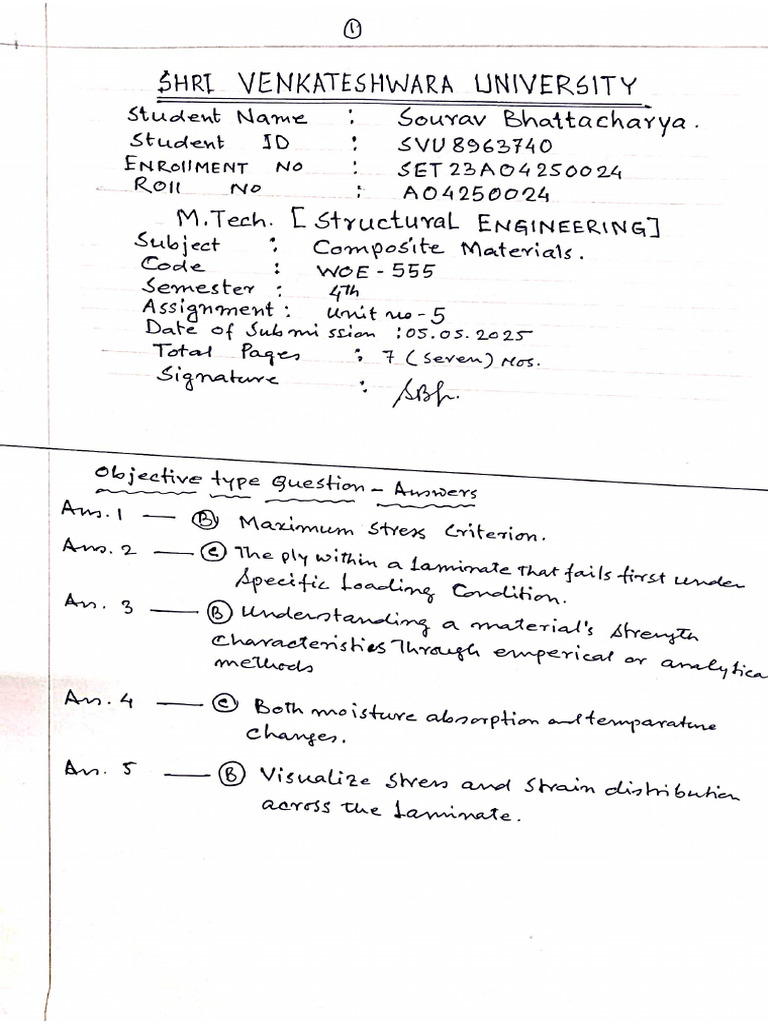 ①
SHRI VENKATESHWARA UNIVERSITY
Student Name : Sourav Bhattacharya.
Student ID : SVU8963740
ENROllMENT NO : SET23A04250024
ROll NO : A04250024
M.Tech. [Structural ENGINEERING]
Subject : Composite Materials.
Code : WOE-555
Semester : 4th
Assignment : Unit no-5
Date of Submission : 05.05.2025
Total Pages : 7 (Seven) Nos.
Signature :
Objective type Question - Answers
Ans.1 — Ⓑ Maximum Stress Criterion.
Ans.2 — Ⓒ The ply within a Laminate that fails first under
Specific Loading Condition.
An. 3 — Ⓑ Understanding a material's Strength
Characteristics Through emperical or analytica
methods
An.4 — Ⓒ Both moisture absorption and temparature
changes.
An.5 — Ⓑ Visualize Stress and Strain distribution
across the Laminate.